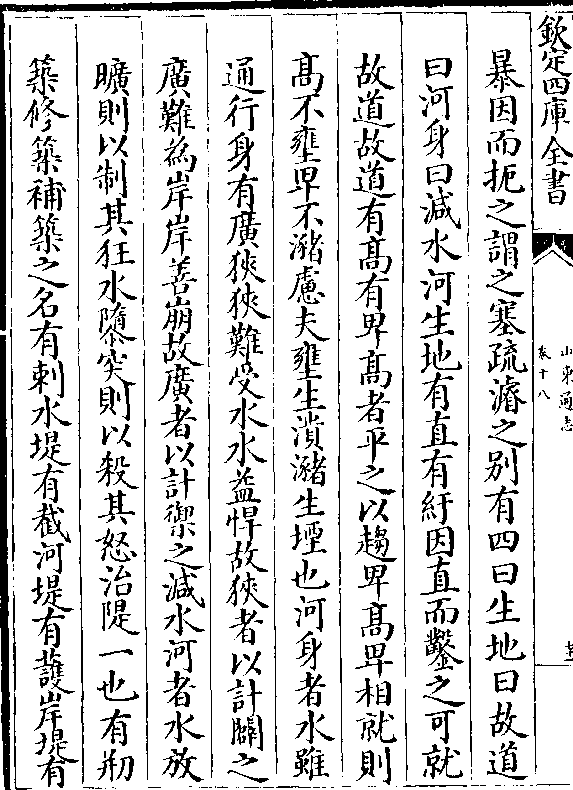 欽定四庫全書
山東通志
卷十八
暴因而扼之謂之塞疏濬之别有四曰生地曰故道
曰河身曰減水河生地有直有紆因直而鑿之可就
故道故道有髙有卑髙者平之以趨卑髙卑相就則
髙不壅卑不瀦慮夫壅生潰瀦生堙也河身者水雖
通行身有廣狹狹難受水水益悍故狹者以計闢之
廣難為岸岸善崩故廣者以計禦之減水河者水放
曠則以制其狂水隳突則以殺其怒治隄一也有剏
築修築補築之名有刺水堤有截河堤有䕶岸堤有